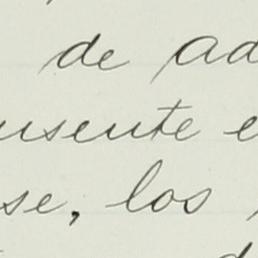 de ad
usente e
se, los